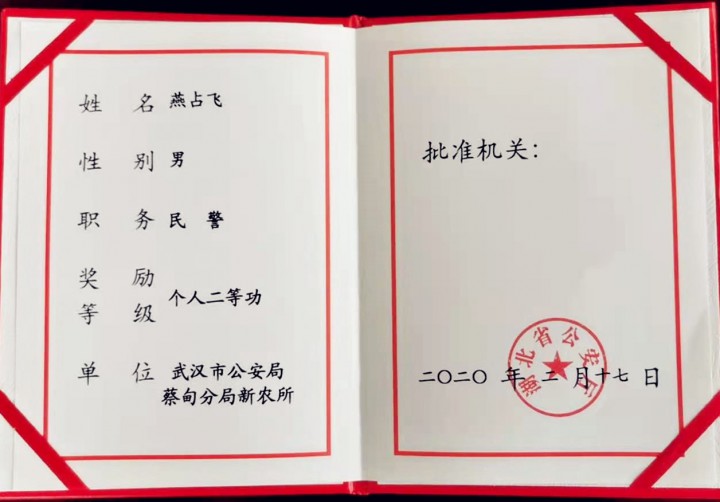 姓 名 燕占飞
性 别 男
职 务 民 警
奖 励
等 级 个人二等功
单 位 武汉市公安局
蔡甸分局新农所
批准机关：
湖北省公安厅
二〇二〇 年 二 月十七 日